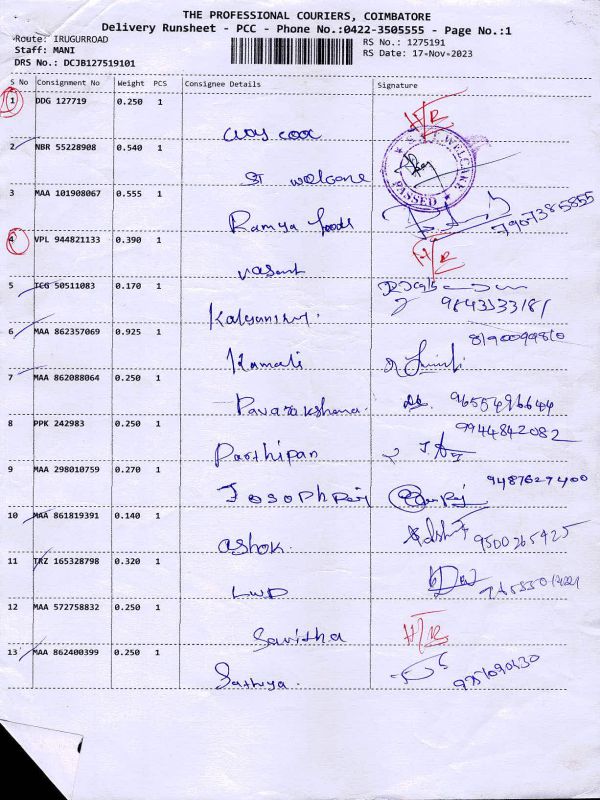 THE PROFESSIONAL COURIERS, COIMBATORE
Delivery Runsheet - PCC - Phone No.:0422-3505555 - Page No.:1
Route: IRUGURROAD
Staff: MANI
DRS No.: DCJB127519101
RS No.: 1275191
RS Date: 17-Nov-2023
S No Consignment No Weight PCS Consignee Details Signature
1 DDG 127719 0.250 1
H/R
2 NBR 55228908 0.540 1 ST welgone
PASSED
3 MAA 101908067 0.555 1 Ramya foods 7907385855
4 VPL 944821133 0.390 1 vasant H/R
5 ICG 50511083 0.170 1
6 MAA 862357069 0.925 1 Kamali
7 MAA 862088064 0.250 1 9655496644
8 PPK 242983 0.250 1 Parthipan 9944842082
9 MAA 298010759 0.270 1 9487627400
10 MAA 861819391 0.140 1 ashok. 9500265425
11 TRZ 165328798 0.320 1
12 MAA 572758832 0.250 1 Savitha H/R
13 MAA 862400399 0.250 1 Sathiya.